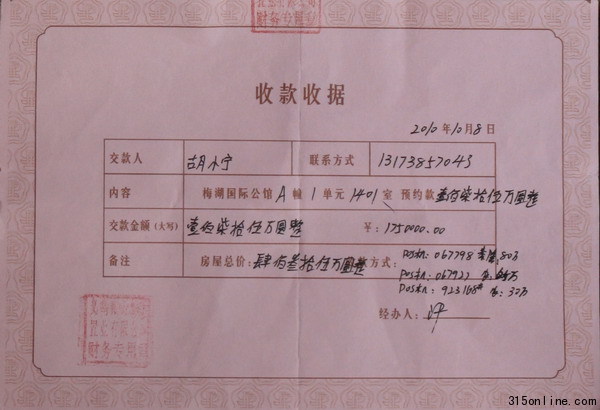 财务专用章
收款收据
2010年10月8日
交款人 胡小宁 联系方式 13173857043
内容 梅湖国际公馆 A 幢 1 单元 1401 室 预约款 壹佰柒拾伍万圆整
交款金额(大写) 壹佰柒拾伍万圆整 ¥: 1750000.00
备注 房屋总价: 肆佰叁拾伍万圆整 方式: POS机: 067798
POS机: 067927
POS机: 923168# 32万
经办人:
财务专用章
315online.com